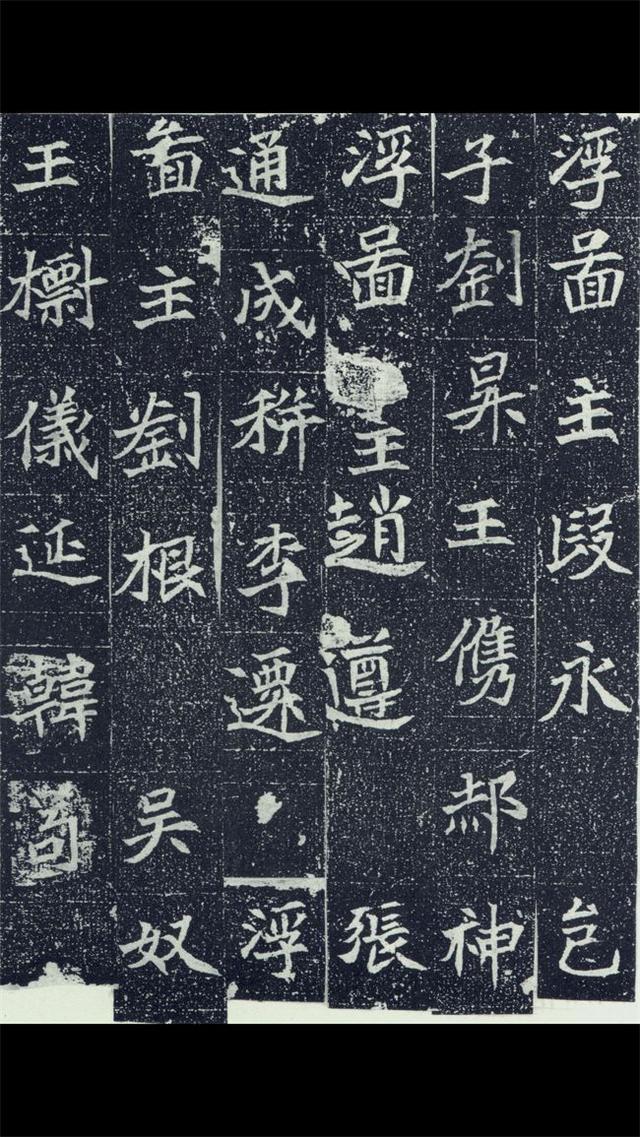 浮啚主段永邑
子劉昇王儁郝神
浮啚王趙遵張
通成秤李遷浮
啚主劉根吴奴
王檦儀延韓苟